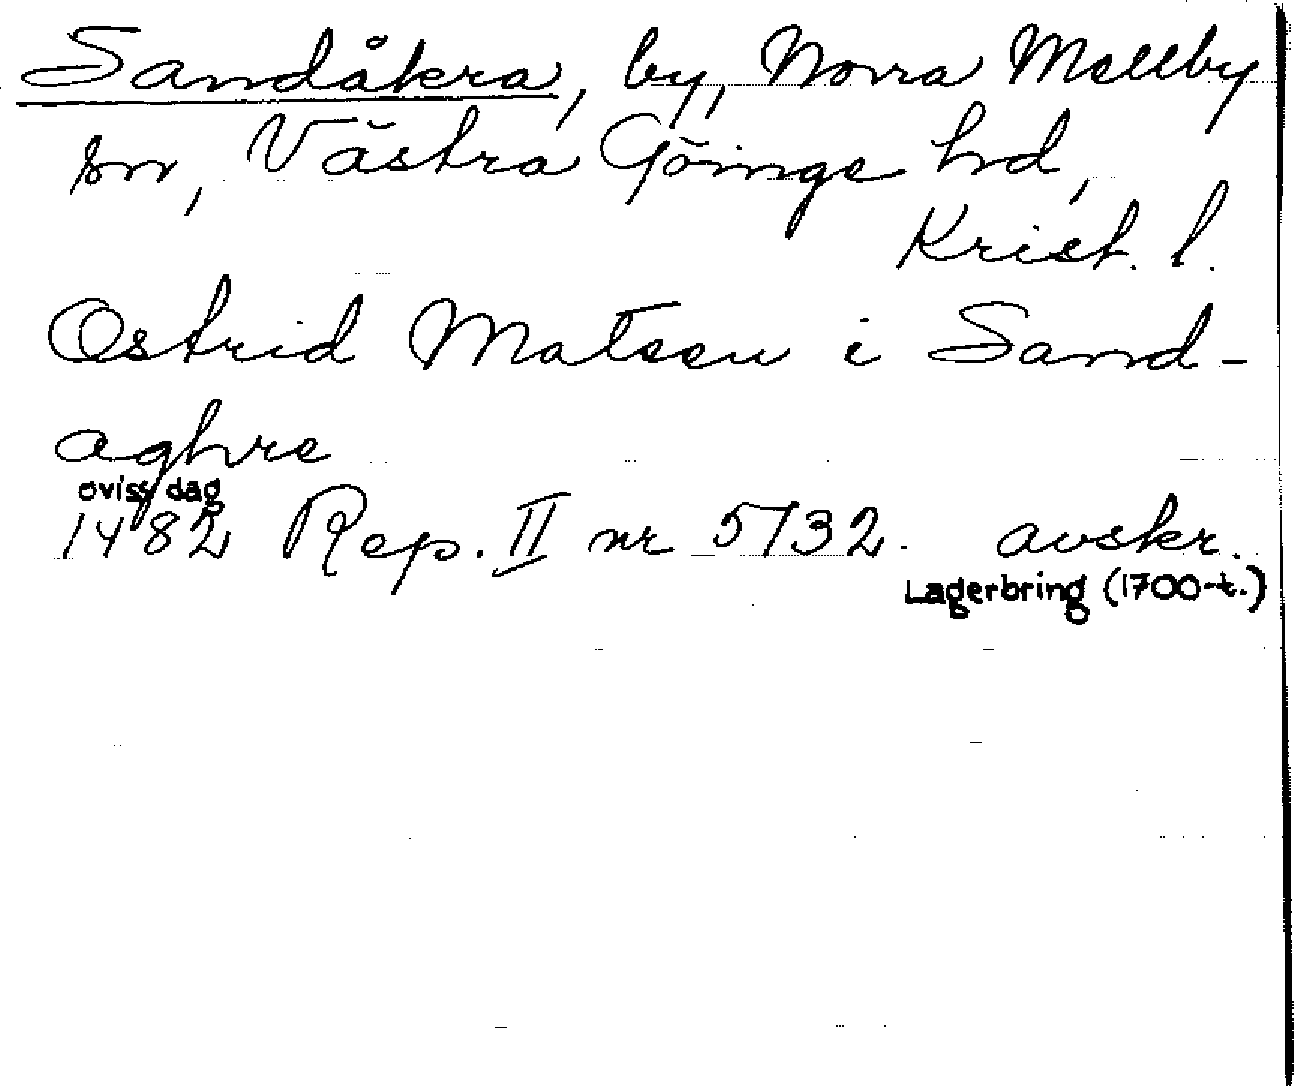 Sandåkra, by, Norra Mellby
sn, Västra Göinge hd,
Krist. l.
Ostrid Matseu i Sand-
aghre
oviss dag
1482 Rep. II nr 5732. avskr.
Lagerbring (1700-t.)